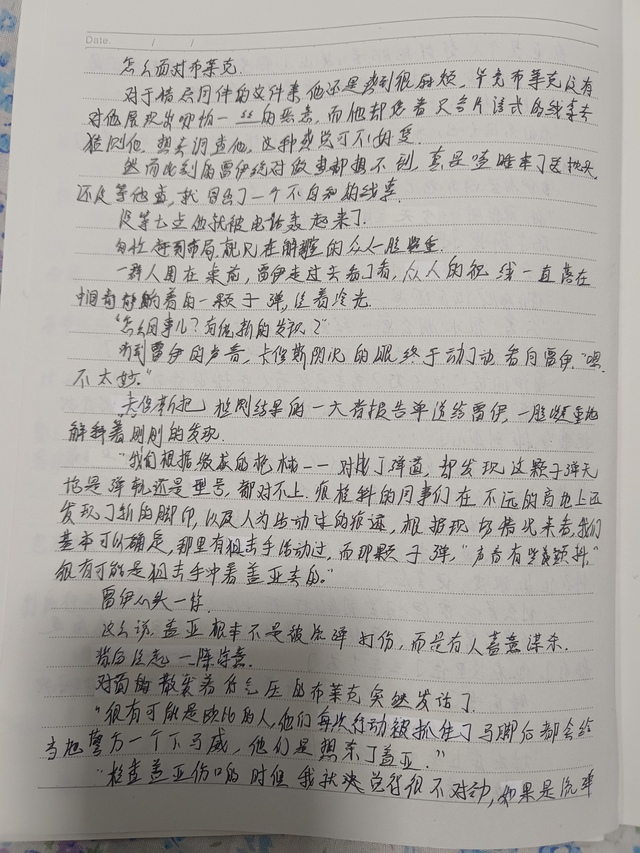 Date.    /    /
怎么面对布莱克.
对于错怎同伴的文件来他还是感到很麻烦,毕竟布莱克没有
对他展现出哪怕一丝的恶意,而他却凭着只言片语式的线索去
猜测他,想去调查他,这种感觉可不好受.
然而此刻的雷伊绝对做梦都想不到,真是瞌睡来了送枕头,
还没等他查,就冒出了一个不自知的线索.
没等七点他就被电话轰起来了.
匆忙赶到布局,就只在朦胧的众人一脸凝重.
一群人围在桌前,雷伊走过去看了看,众人的视线一直落在
中间奇静躺着的一颗子弹,泛着冷光.
“怎么回事儿?有促新的发现?”
听到雷伊的声音,卡修斯阴沉的眼终于动了动看向雷伊.“嗯,
不太妙.”
卡修斯把检测结果的一大沓报告单送给雷伊,一脸凝重地
解释着刚刚的发现.
“我们根据缴获的枪械一一对比了弹道,却发现这颗子弹无
论是弹轨还是型号,都对不上.痕检科的同事们在不远的高地上还
发现了新的脚印,以及人为活动过的痕迹,根据现场情况来看,我们
基本可以确定,那里有狙击手活动过,而那颗子弹,”声音有些颤抖,“
很有可能是狙击手冲着盖亚去的.”
雷伊心头一惊.
这么说,盖亚根本不是被流弹打伤,而是有人蓄意谋杀.
背后泛起一阵凉意.
对面的散发着低气压的布莱克突然发话了.
“很有可能是的人,他们每次行动被抓住了马脚后都会给
当地警方一个下马威,他们是想杀了盖亚.”
“检查盖亚伤口的时候我就觉得很不对劲,如果是流弹